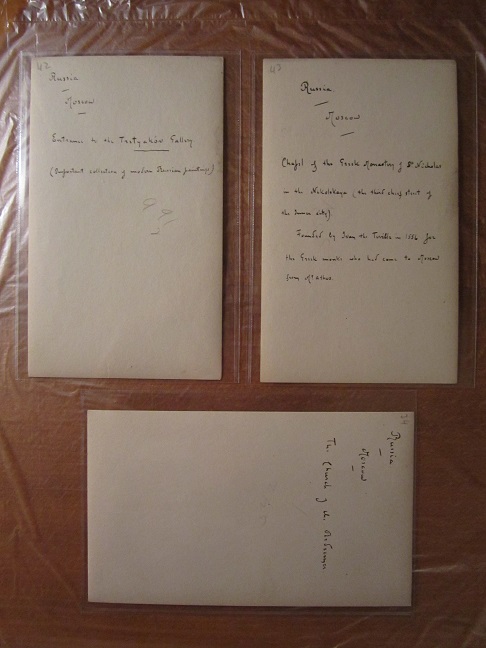 Russia
Moscow
Entrance to the Tretyakóv Gallery
(Important collection of modern Russian paintings)
Russia
Moscow
Chapel of the Greek Monastery of St Nicholas
in the Nikolskaya (the third chief street of
the inner city).
Founded by Ivan the Terrible in 1556 for
the Greek monks who had come to Moscow
from Mt Athos.
Russia
Moscow
The Church of the